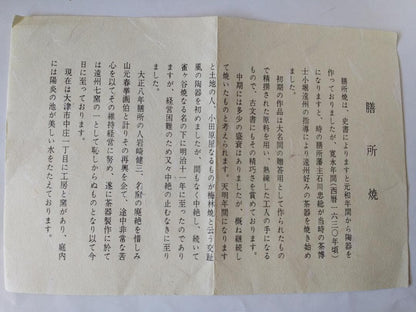 膳所焼
膳所焼は、史書によりますと元和年間から陶器を
作っておりましたが、寛永年間（西暦一六三〇年頃）
になりますと、時の膳所藩主石川忠総が当時の茶博
士小堀遠州の指導により遠州好みの茶器を焼き始め
ました。
初期の作品は大名間の贈答用として作られたもの
で精撰された原料を用い、熟練した工人の手になる
もので、古文書にもその精巧さを賞めております。
中期には多少の盛衰はありましたが、兎ね継続し
て焼いたものと考えられます。天明年間になります
と土地の人、小田原屋なるものが梅林焼と云う交趾
風の陶器を初めましたが、間もなく中絶し、続いて
雀ヶ谷焼なる名の下に明治十一年に至ったのであり
ますが、経営困難のため又々中絶の止むなきに至り
ました。
大正八年膳所の人岩崎健三、名窯の廃絶を惜しみ
山元春挙画伯と計りその再興を企て、途中非常な苦
心を以てその維持経営に努め、遂に茶器製作に於て
は遠州七窯の一として恥しからぬものとなり以て今
日に至っております。
現在は大津市中庄一丁目に工房と窯があり、庭内
には陽炎の池が美しい水をたたえております。